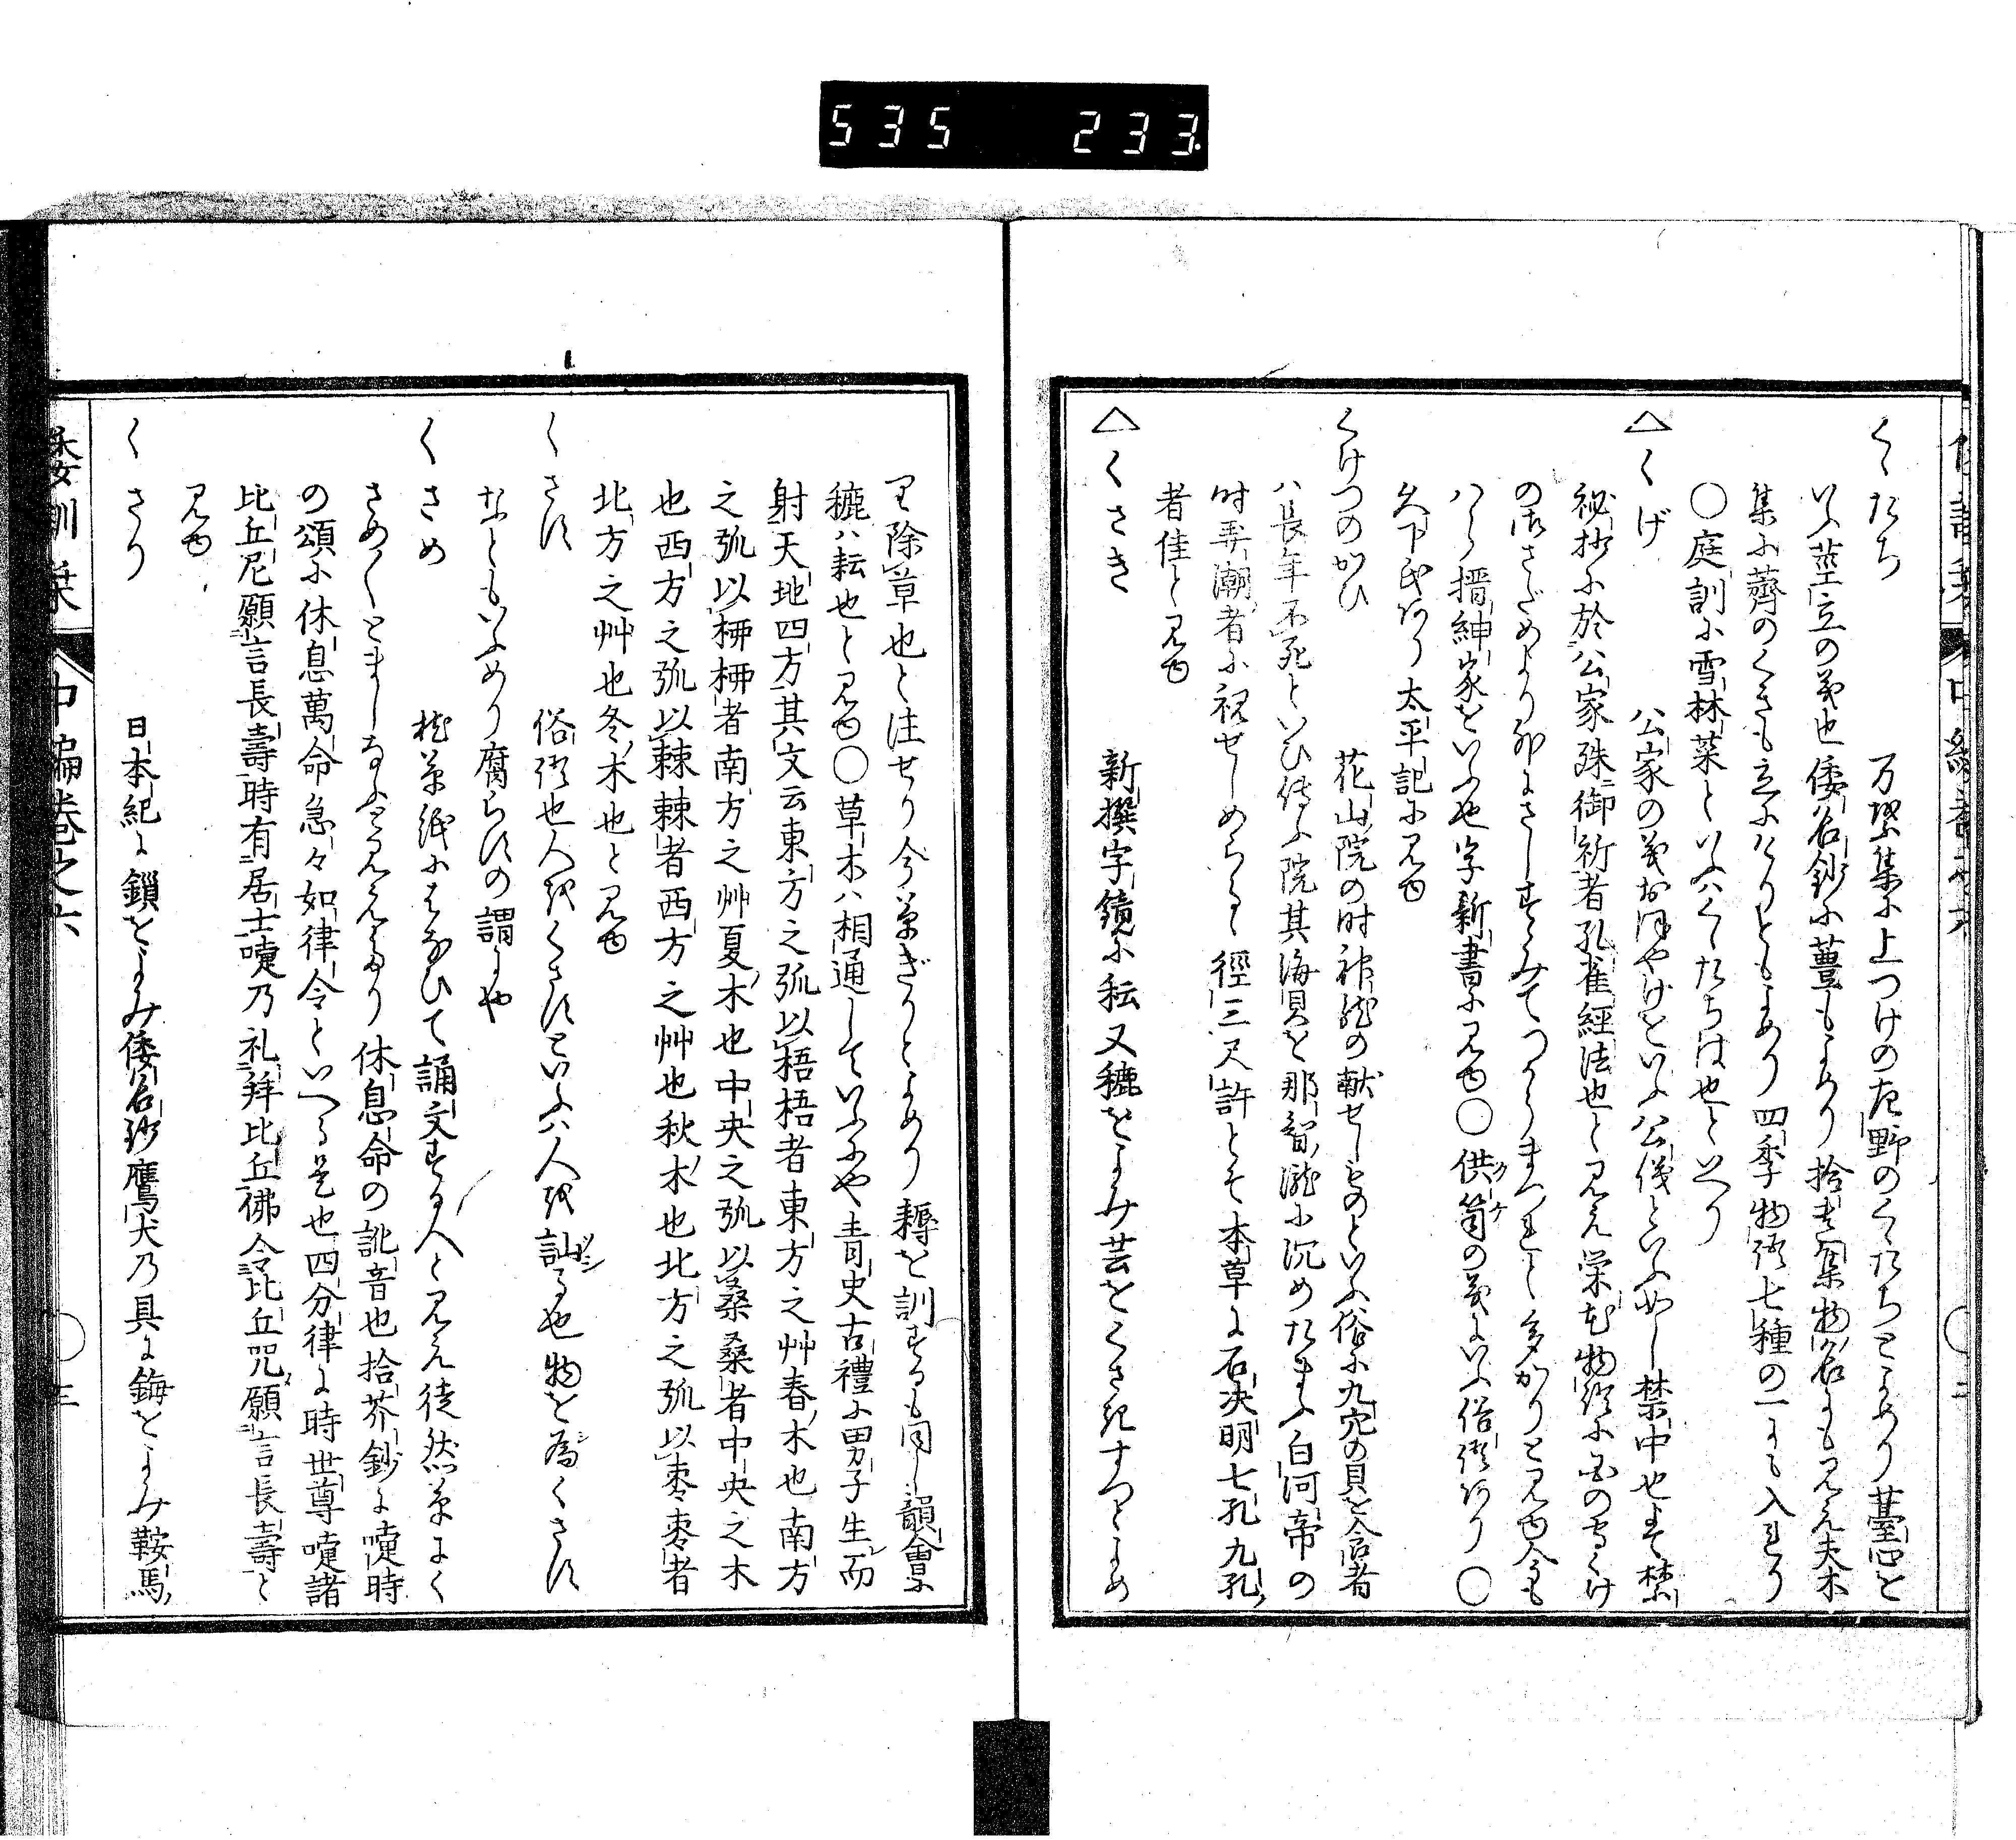 535 233
くゝたち 万葉集に上つけの左野のくゝたちとよめり薹心を
いふ莖立の義也倭名鈔に葑もよめり拾遺集物名にも見え夫木
集に薺のくきも立になりともよめり四季物語七種の一にも入れり
○庭訓に雪林菜といふハくゝたちは也といへり
△くげ 公家の義おほやけをいふ公儀といふかし禁中也また禁
祕抄に於公家殊御祈者孔雀經法也と見え栄花物語に国のさくけ
のほさだめより外にさしすゝみてつかうまつれと多かりと見ゆ今も
ハら搢紳家をいふ也字新書に見ゆ○供笥の義にいふ俗語なり○
久下氏あり太平記に見ゆ
くけつのかひ 花山院の時神龍の献せしものといふ俗に九穴の貝を食者
ハ長年不死といひ傳ふ院其海貝を那智瀧に沉めたまふ白河帝の
時弄潮者に視せしめらるゝ徑三尺許とそ本草に石决明七孔九孔
者佳と見ゆ
△くさき 新撰字鏡に耘又穮をよみ芸をくさきすつとよめ
り除草也と注せり今草ぎりとよめり耨を訓するも同し韻會に
穮ハ耘也と見ゆ○草木ハ相通していふにや青史古禮に男子生而
射天地四方其文云東方之弧以梧梧者東方之艸春木也南方
之弧以柳柳者南方之艸夏木也中央之弧以桑桑者中央之木
也西方之弧以棘棘者西方之艸也秋木也北方之弧以棗棗者
北方之艸也冬木也と見ゆ
くさす 俗語也人をくさすといふハ人を訕る也物を爲くさす
なともいふめり腐らすの謂にや
くさめ 枕草紙にはなひて誦文する人と見え徒然草にく
さめ〱とましなふ事見えたり休息命の訛音也拾芥鈔に嚔時
の頌に休息萬命急々如律令といへる是也四分律に時世尊嚔諸
比丘尼願言長壽時有居士嚔乃礼拜比丘佛令比丘咒願言長壽と
見ゆ
くさり 日本紀に鎖をよみ倭名鈔鷹犬乃具に鋂をよみ鞍馬
倭訓栞 中編巻之六 ○ 三